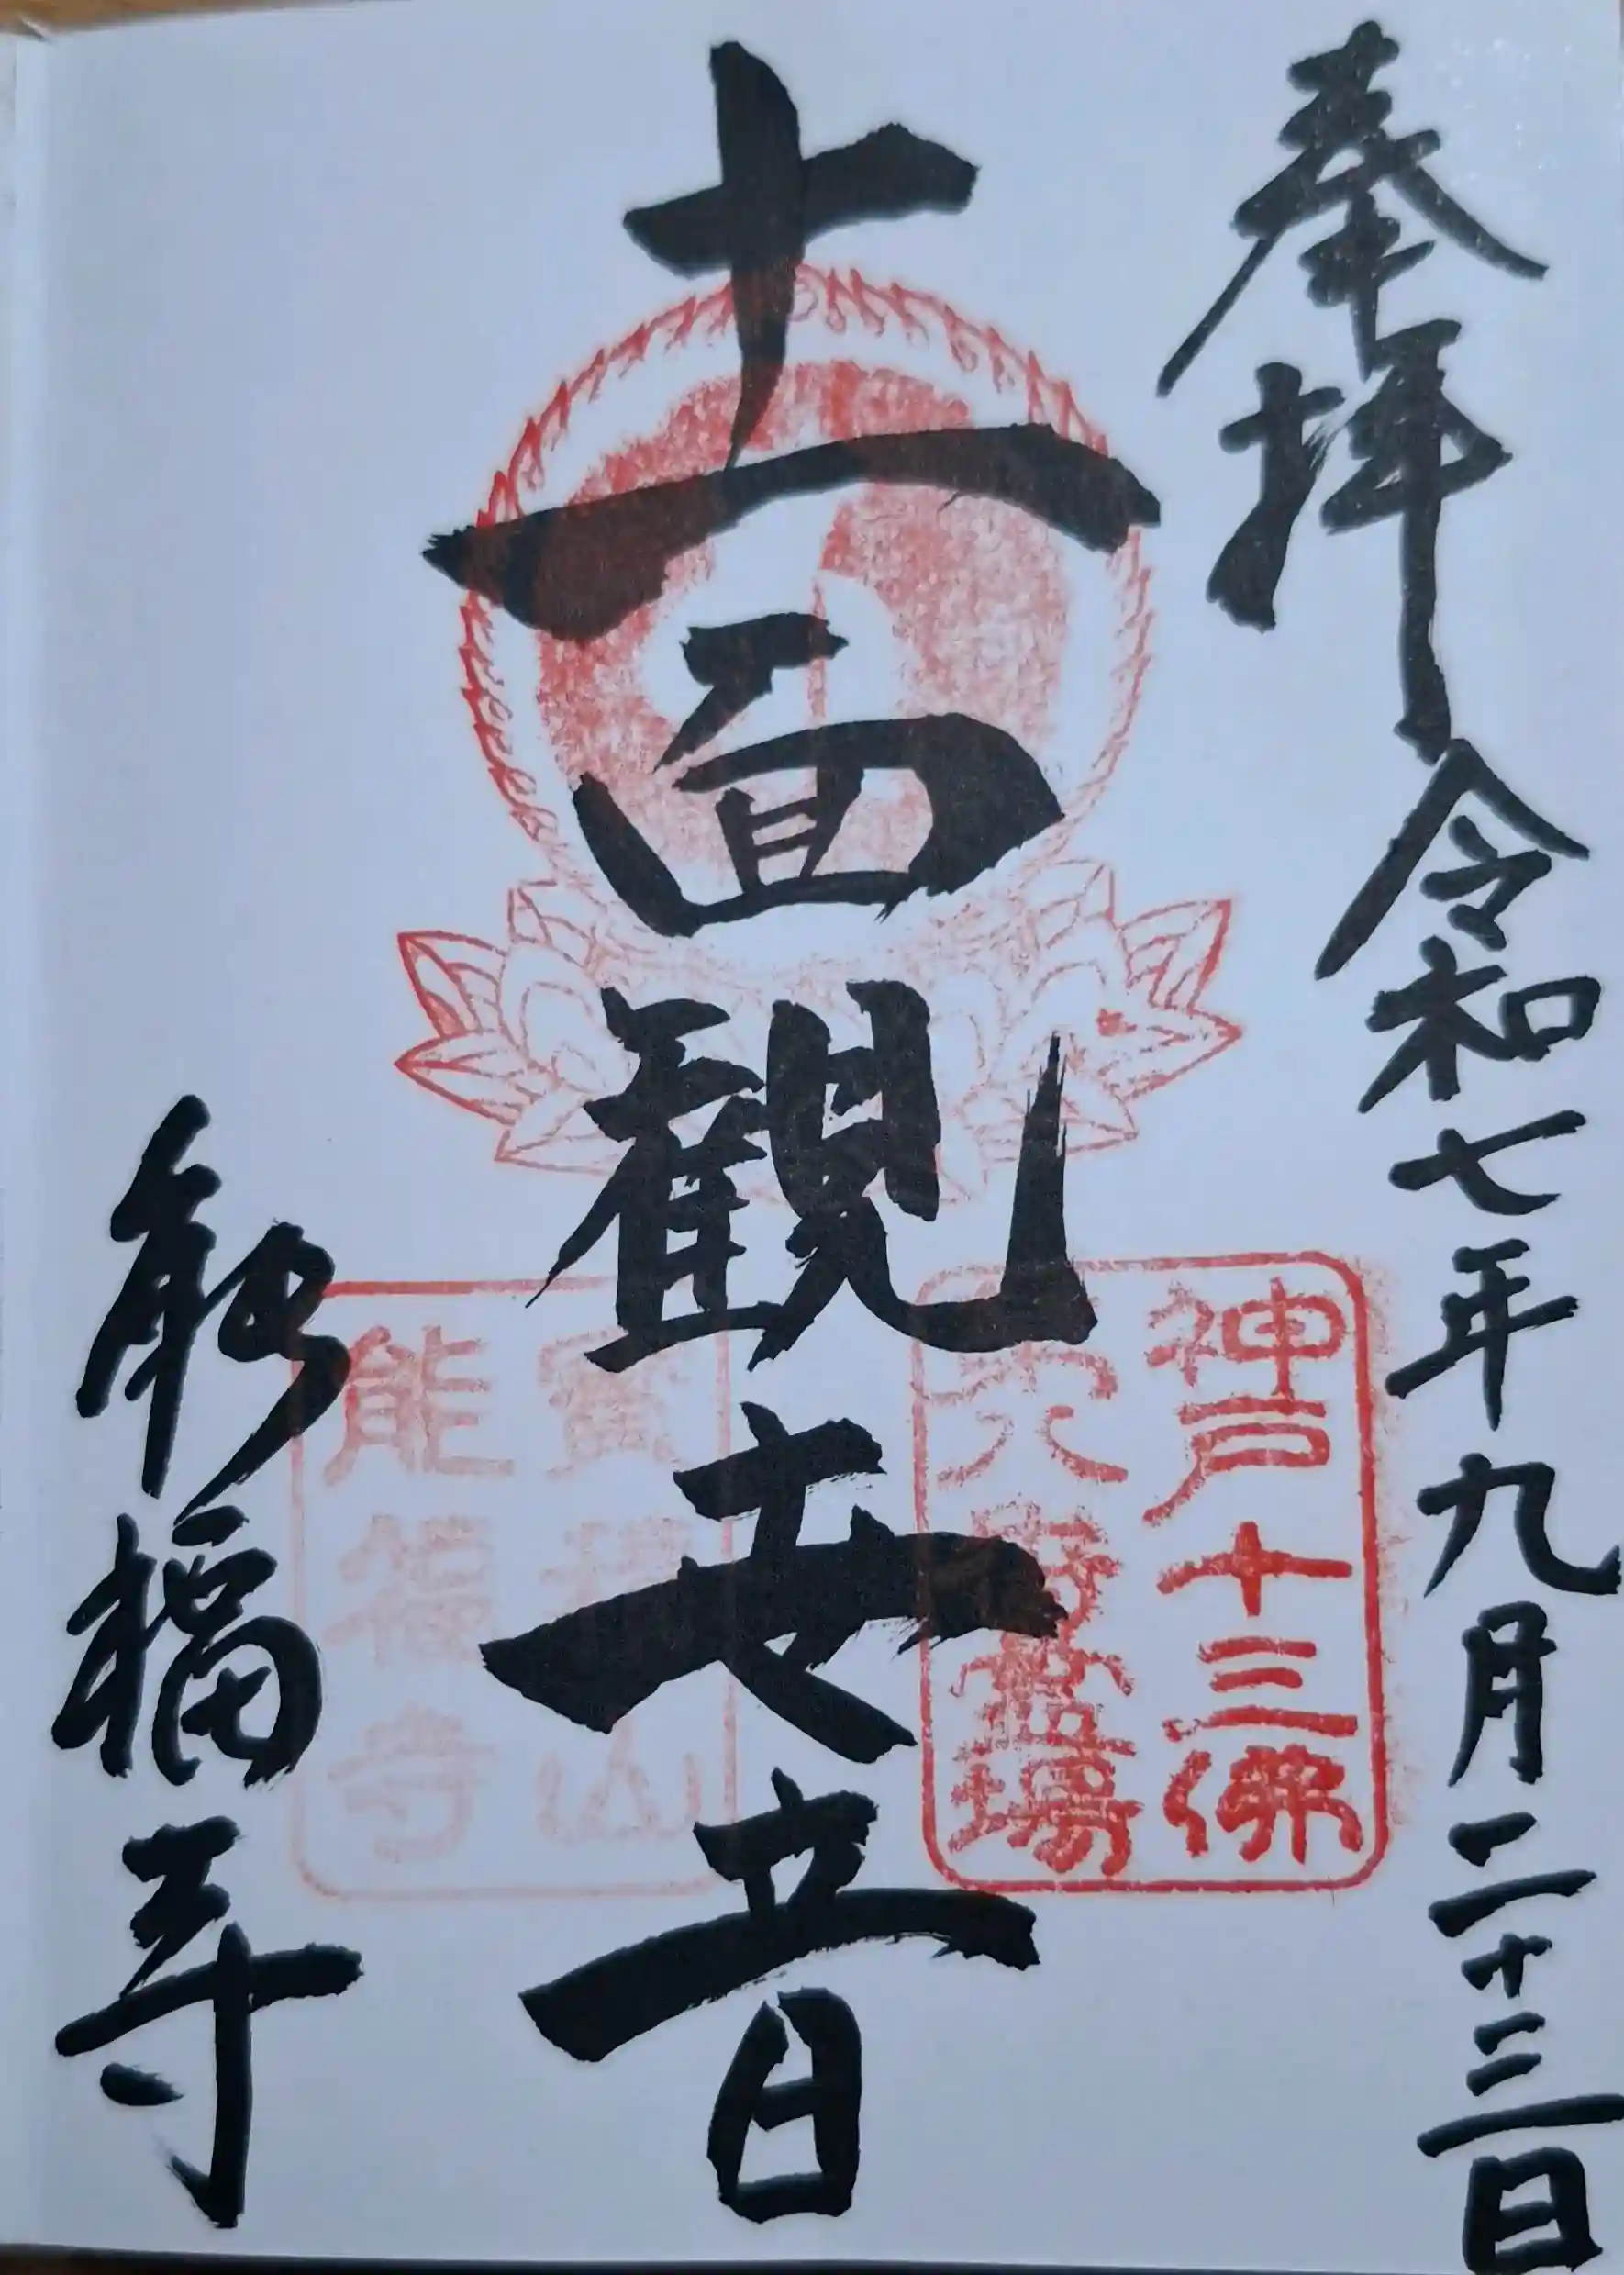 奉拝 令和七年九月二十三日
十一面観世音
能福寺
神戸十三佛
第六番霊場
寳積山
能福寺